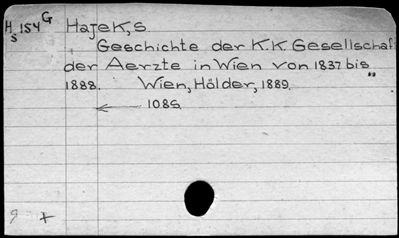 Hs 154 G Hajek, S
Geschichte der K.K Gesellschaft
der Aerzte in Wien von 1837 bis
1888. Wien, Hölder, 1889.
108S.